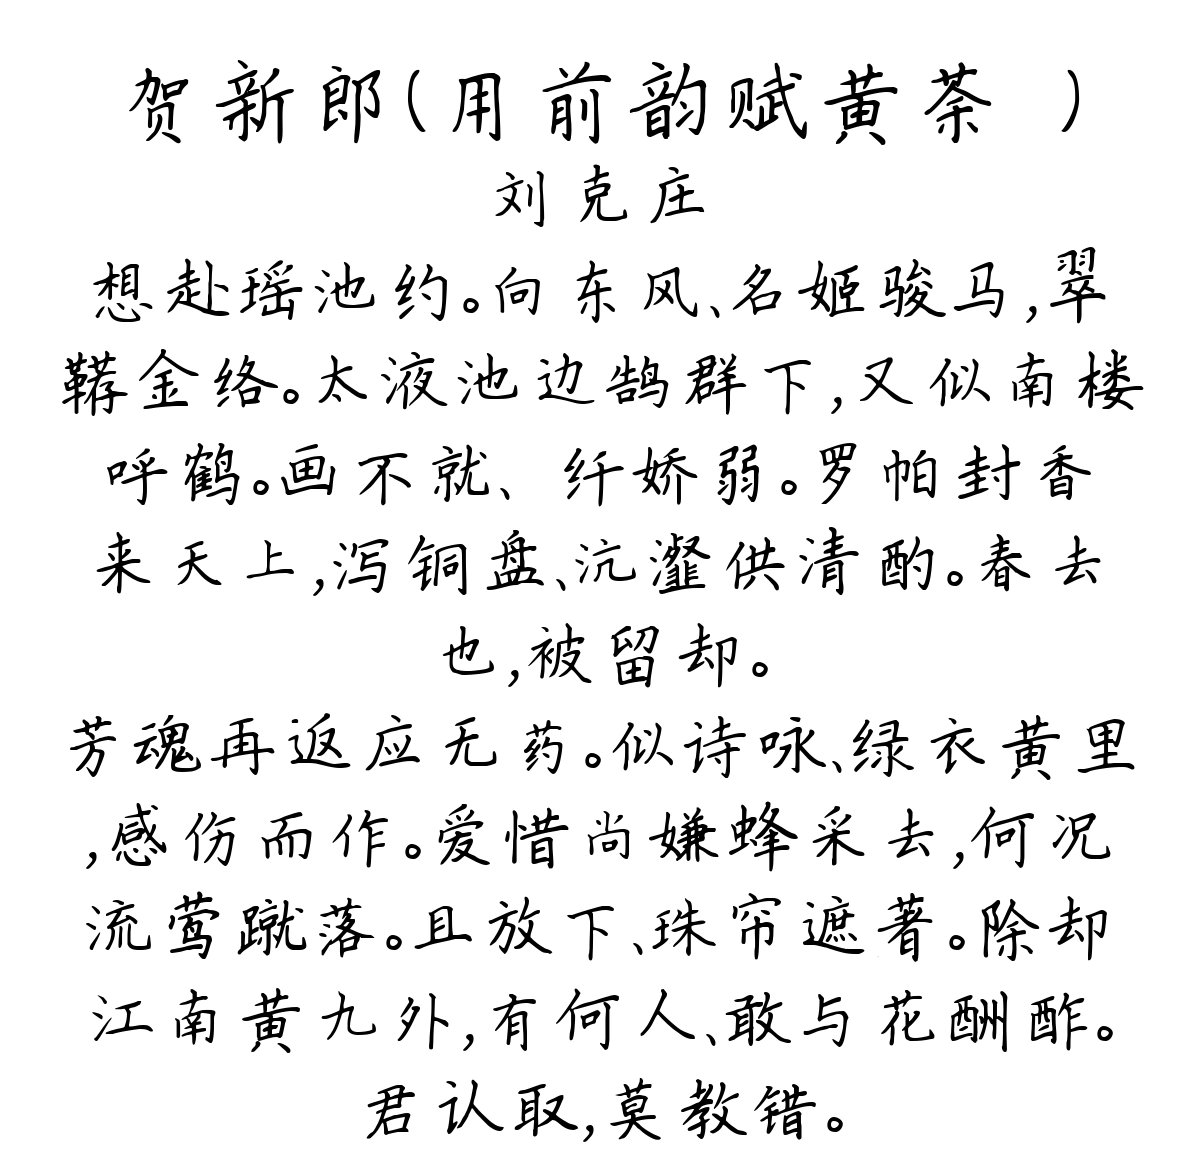 贺新郎(用前韵赋黄荼 )
刘克庄
想赴瑶池约。向东风、名姬骏马,翠
鞯金络。太液池边鹄群下,又似南楼
呼鹤。画不就、纤娇弱。罗帕封香
来天上,泻铜盘、沆瀣供清酌。春去
也,被留却。
芳魂再返应无药。似诗咏、绿衣黄里
,感伤而作。爱惜尚嫌蜂采去,何况
流莺蹴落。且放下、珠帘遮著。除却
江南黄九外,有何人、敢与花酬酢。
君认取,莫教错。